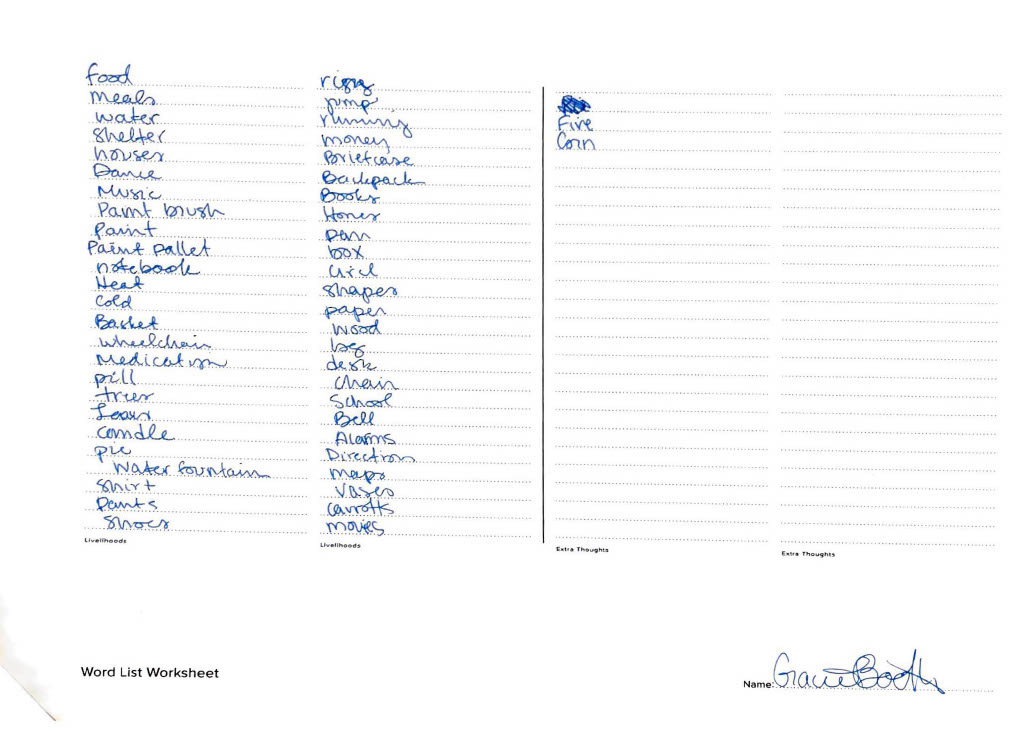 food
meals
water
shelter
houses
Dance
Music
Paint brush
Paint
Paint pallet
notebook
Heat
Cold
Basket
wheelchair
Medication
pill
trees
Leaves
candle
pie
Water fountain
shirt
Pants
Shoes
Livelihoods
rigg
pump
running
money
Briefcase
Backpack
Books
Honey
pan
box
Girl
shapes
paper
Wood
leg
desk
Chair
School
Bell
Alarms
Direction
maps
Vases
carrotts
movies
Livelihoods
Fire
Corn
Extra Thoughts
Extra Thoughts
Word List Worksheet
Name: Gracie Booth